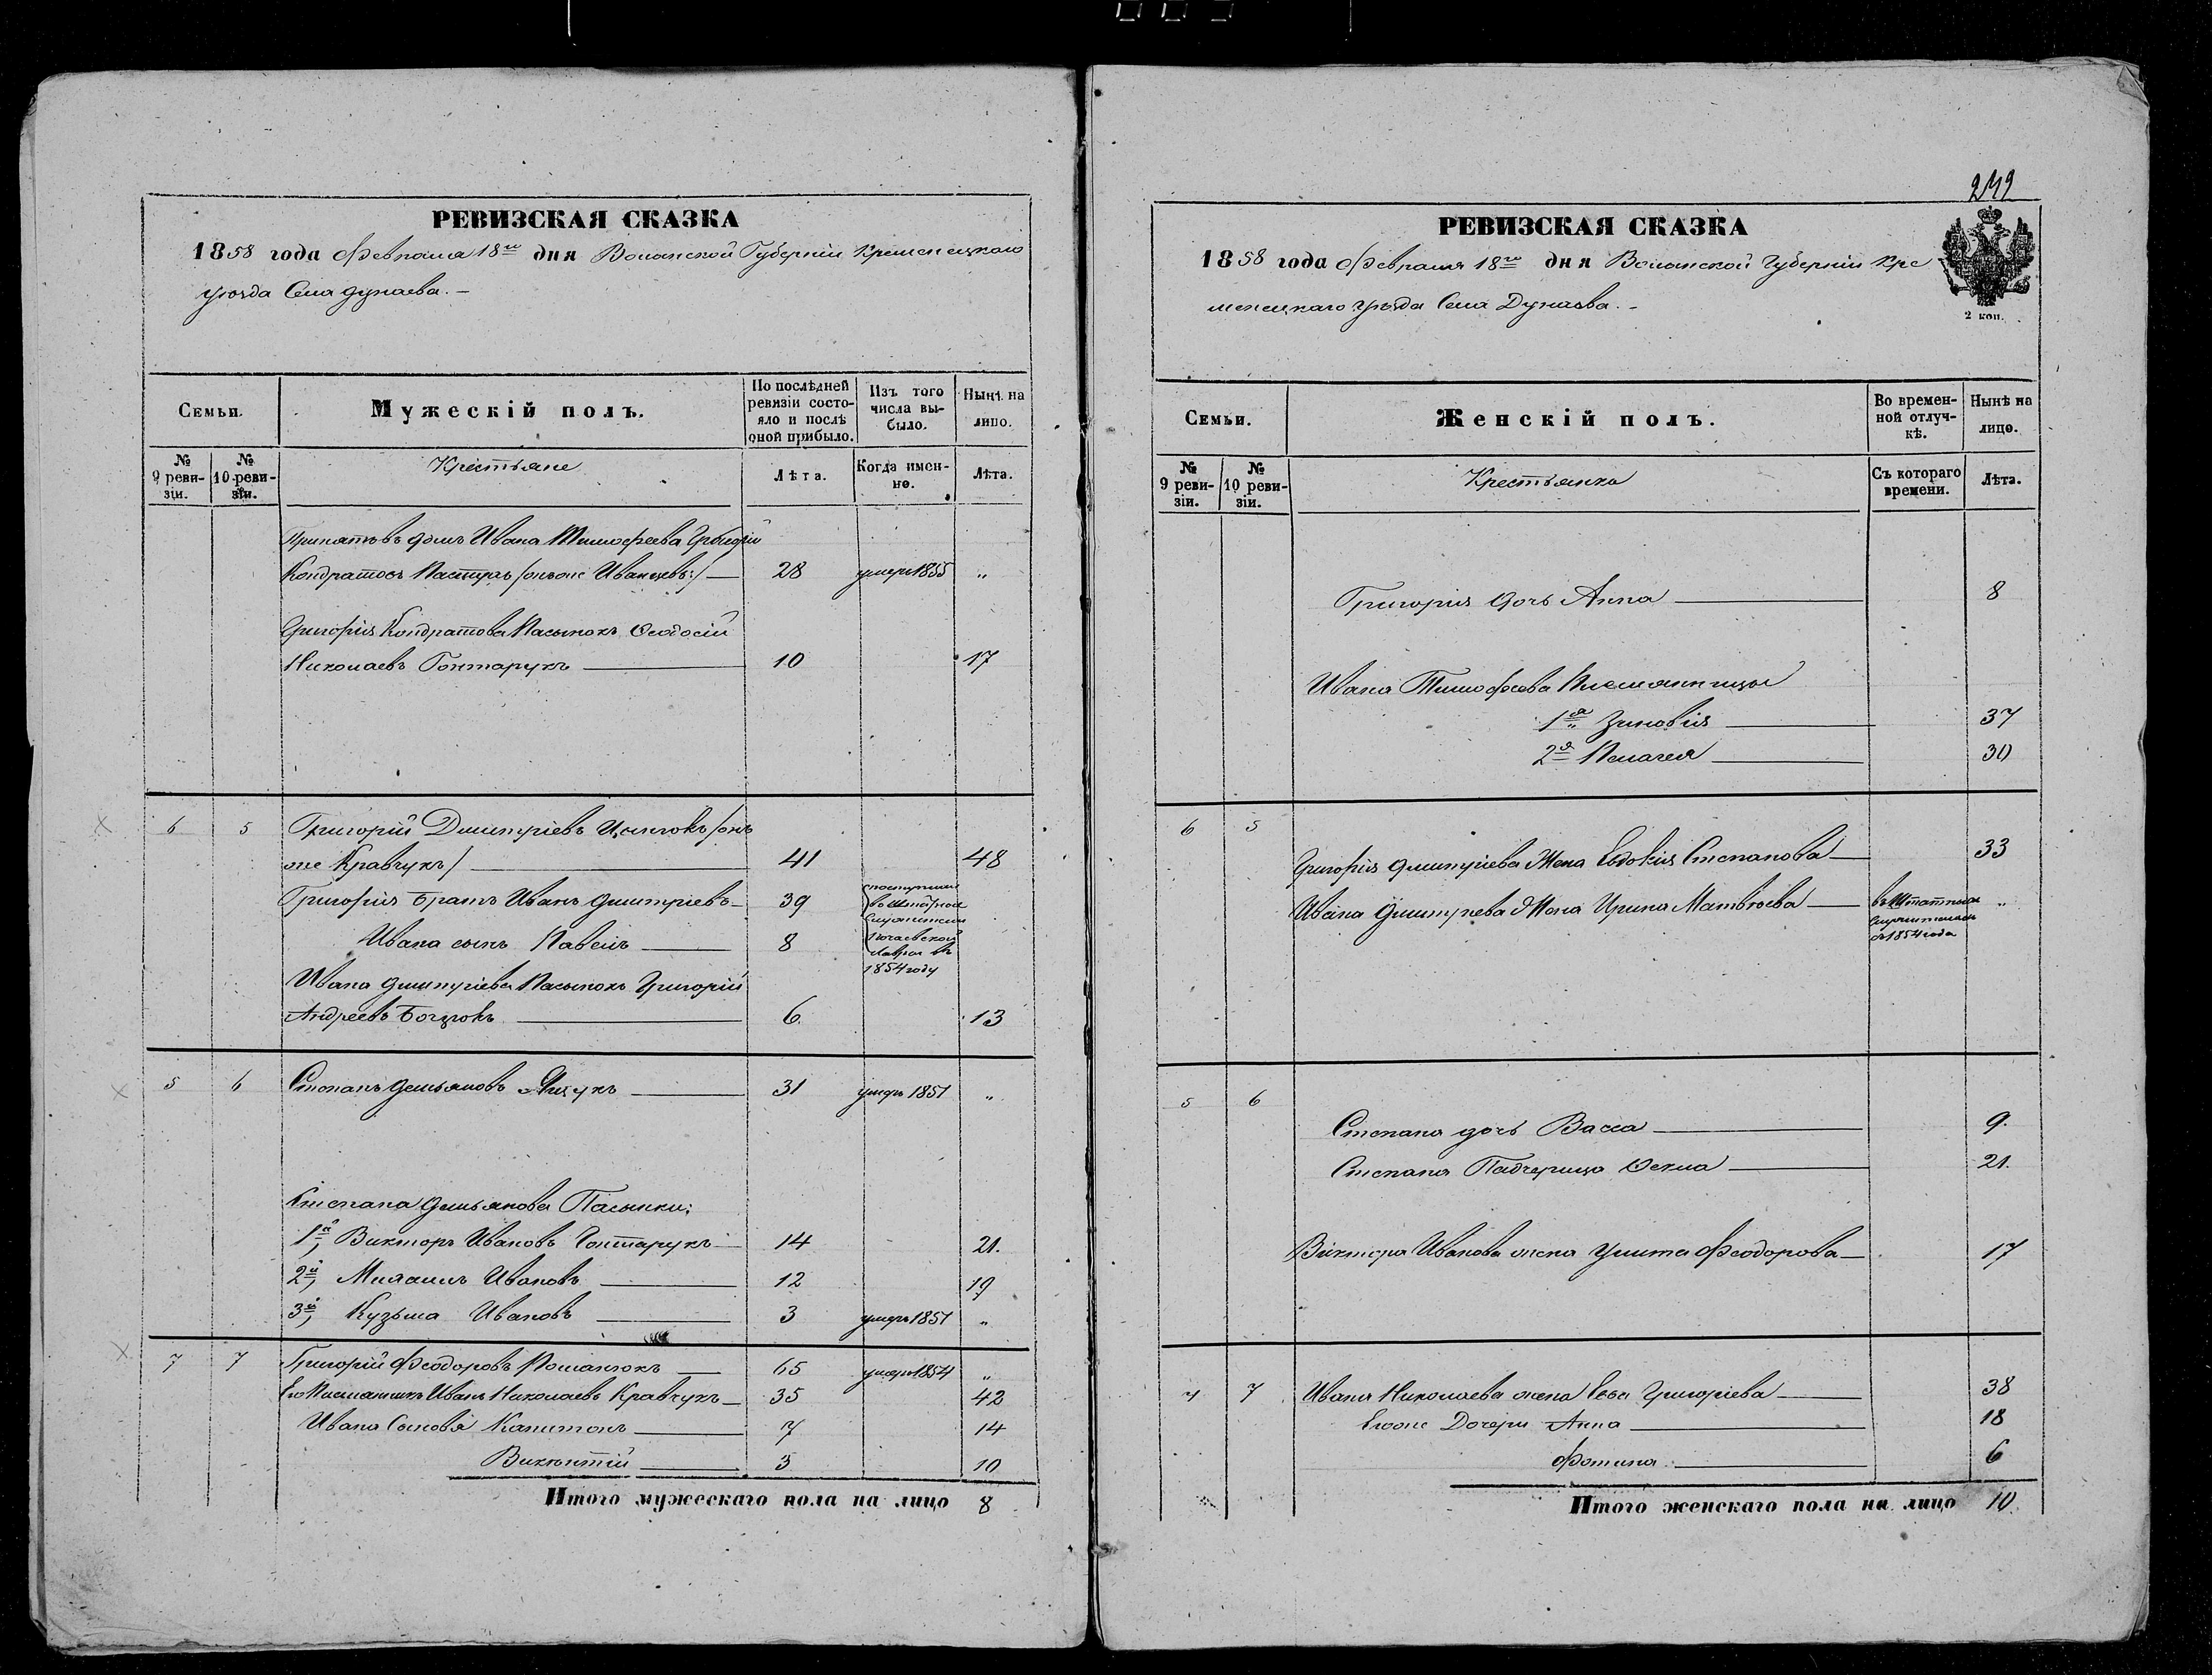 РЕВИЗСКАЯ СКАЗКА
1858 года Февраля 18го дня Волынской Губерніи Кременецкаго
уѣзда Села Дунаева. –
Семьи.
Мужескій полъ.
По послѣдней ревизіи состояло и послѣ оной прибыло.
Изъ того числа выбыло.
Нынѣ на лицо.
№ 9 ревизіи.
№ 10 ревизіи.
Крестьяне
Лѣта.
Когда именно.
Лѣта.
Принятъ въ домъ Ивана Тимофеева Григорій
Кондратовъ Пастухъ /онъ же Иванцевъ:/ 28 умеръ 1855 "
Григорія Кондратова Пасынокъ Ѳеодосій
Николаевъ Гонтарукъ 10 17
6 5 Григорій Дмитріевъ /онъ
же Кравчукъ/ 41 48
Григорія Братъ Иванъ Дмитріевъ 39 поступили
въ Штатные
Служители
Ивана сынъ Павелъ 8 Почаевской
Лавры въ
1854 году
Ивана Дмитріева Пасынокъ Григорій
Андреевъ 6. 13
5 6 Степанъ Демьяновъ 31 умеръ 1851 "
Степана Демьянова Пасынки:
1й, Викторъ Ивановъ Гонтарукъ 14 21.
2й, Михаилъ Ивановъ 12 19
3й, Кузьма Ивановъ 3 умеръ 1851 "
7 7 Григорій Феодоровъ 65 умеръ 1854 "
Его Племянникъ Иванъ Николаевъ Кравчукъ 35 42
Ивана Сыновья Капитонъ 7 14
Викентій 3 10
Итого мужескаго пола на лицо 8
242
РЕВИЗСКАЯ СКАЗКА
1858 года Февраля 18го дня Волынской Губерніи Кре
менецкаго Уѣзда Села Дунаева. –
2 коп.
Семьи.
Женскій полъ.
Во временной отлучкѣ.
Нынѣ на лицо.
№ 9 ревизіи.
№ 10 ревизіи.
Крестьянка
Съ котораго времени.
Лѣта.
Григорія дочь Анна 8
Ивана Тимофеева Племянницы
1я Зиновія 37
2я Пелагея 30
6 5
Григорія Дмитріева Жена Евдокія Степанова 33
Ивана Дмитріева Жена Ирина Матвѣева въ Штатныхъ "
Служителяхъ
съ 1854 года
5 6
Степана дочь Васса 9.
Степана Падчерица Ѳекла 21.
Виктора Иванова жена Улита Феодорова 17
7 7 Ивана Николаева жена Ева Григоріева 38
Егоже Дочери Анна 18
Фотина 6
Итого женскаго пола на лицо 10.